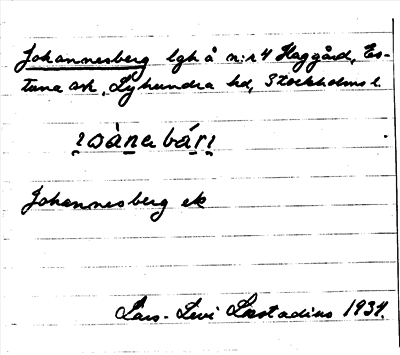 Johannesberg lgh å n:r 4 Haggård, Es-
tuna sn, Lyhundra hd, Stockholms l.
Johannesberg ek
Lars-Levi Læstadius 1934.